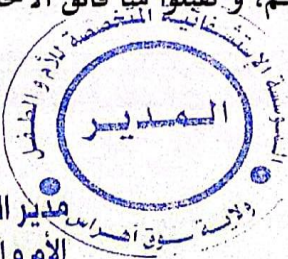 و تقبلوا منا فائق الاحـ
المؤسسة الإستشفائية المتخصصة للأم و الطفل
المديـر
ولايـة سـوق أهـراس
مدير ال
الأم و ا